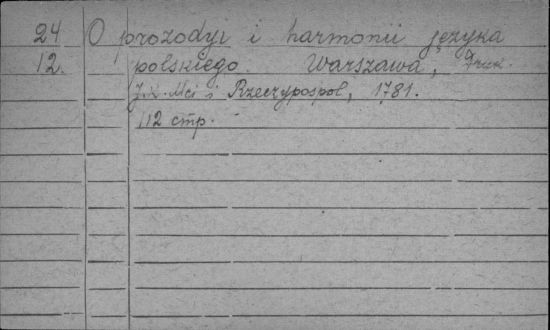 24 O prozodyi i harmonii języka
12. polskiego. Warszawa, Druk.
J. K. Mci i Rzeczypospol, 1781.
112 стр.